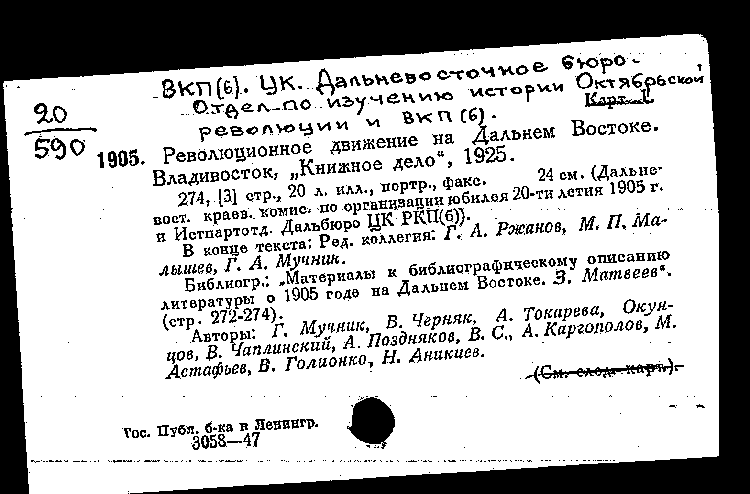 ВКП(б). ЦК. Дальневосточное бюро.
Отдел по изучению истории Октябрьской
революции и ВКП(б).
Карт. 1.
20
590
1905. Революционное движение на Дальнем Востоке.
Владивосток, „Книжное дело", 1925.
274, [3] стр., 20 л. илл., портр., факс. 24 см. (Дальне-
вост. краев. комис. по организации юбилея 20-ти летия 1905 г.
и Истпартотд. Дальбюро ЦК РКП(б)).
В конце текста: Ред. коллегия: Г. А. Ржанов, М. П. Ма-
лышев, Г. А. Мучник.
Библиогр.: „Материалы к библиографическому описанию
литературы о 1905 годе на Дальнем Востоке. З. Матвеев".
(стр. 272-274).
Авторы: Г. Мучник, В. Черняк, А. Токарева, Окун-
цов, В. Чаплинский, А. Поздняков, В. С., А. Каргополов, М.
Астафьев, В. Голионко, Н. Аникиев.
(См. след. карт.).
Гос. Публ. б-ка в Ленингр.
3058—47